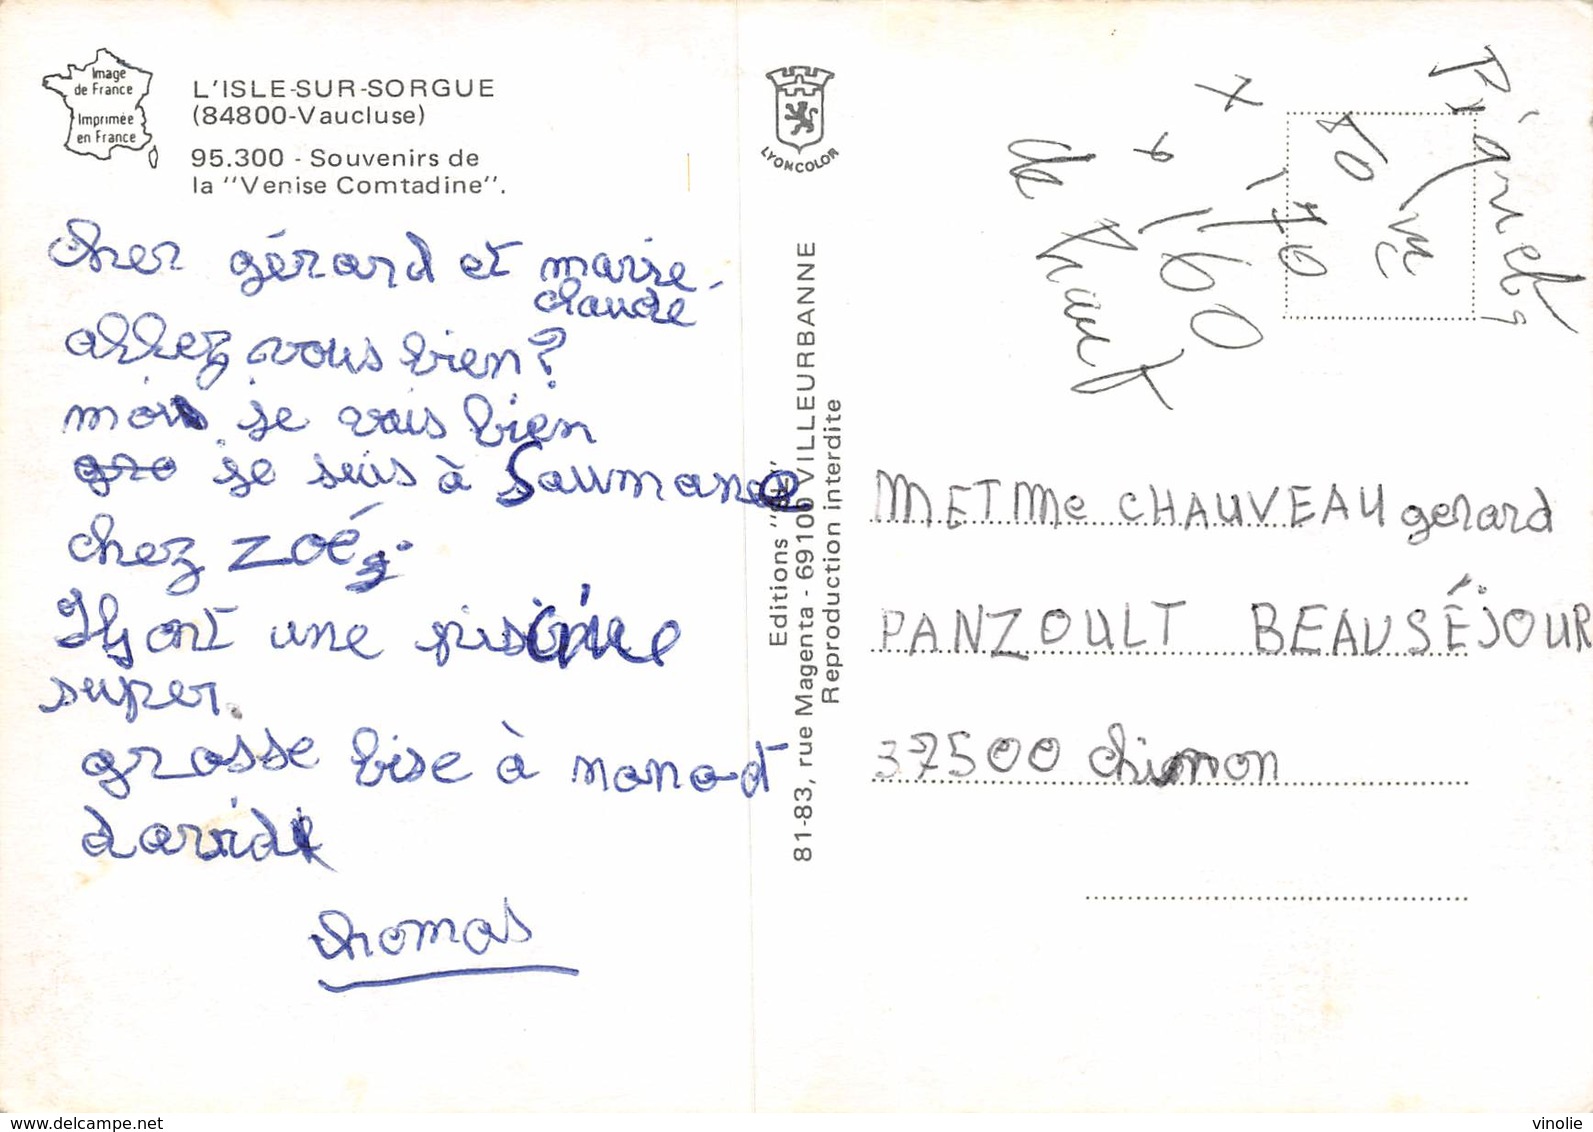 Image
de France
Imprimée
en France
L'ISLE-SUR-SORGUE
(84800-Vaucluse)
95.300 - Souvenirs de
la "Venise Comtadine".
cher gérard et marie-
claude
allez vous bien?
moi je vais bien
gro je suis à Saumane
chez zoé
Ils ont une piscine
super.
grosse bise à nano et
david
thomas
LYONCOLOR
Editions
81-83, rue Magenta - 69100 VILLEURBANNE
Reproduction interdite
Piquets
80 m
x 1,70
x 1,60
de haut
M ET Mme CHAUVEAU gerard
PANZOULT BEAUSÉJOUR
37500 chinon
delcampe.net
vinolie